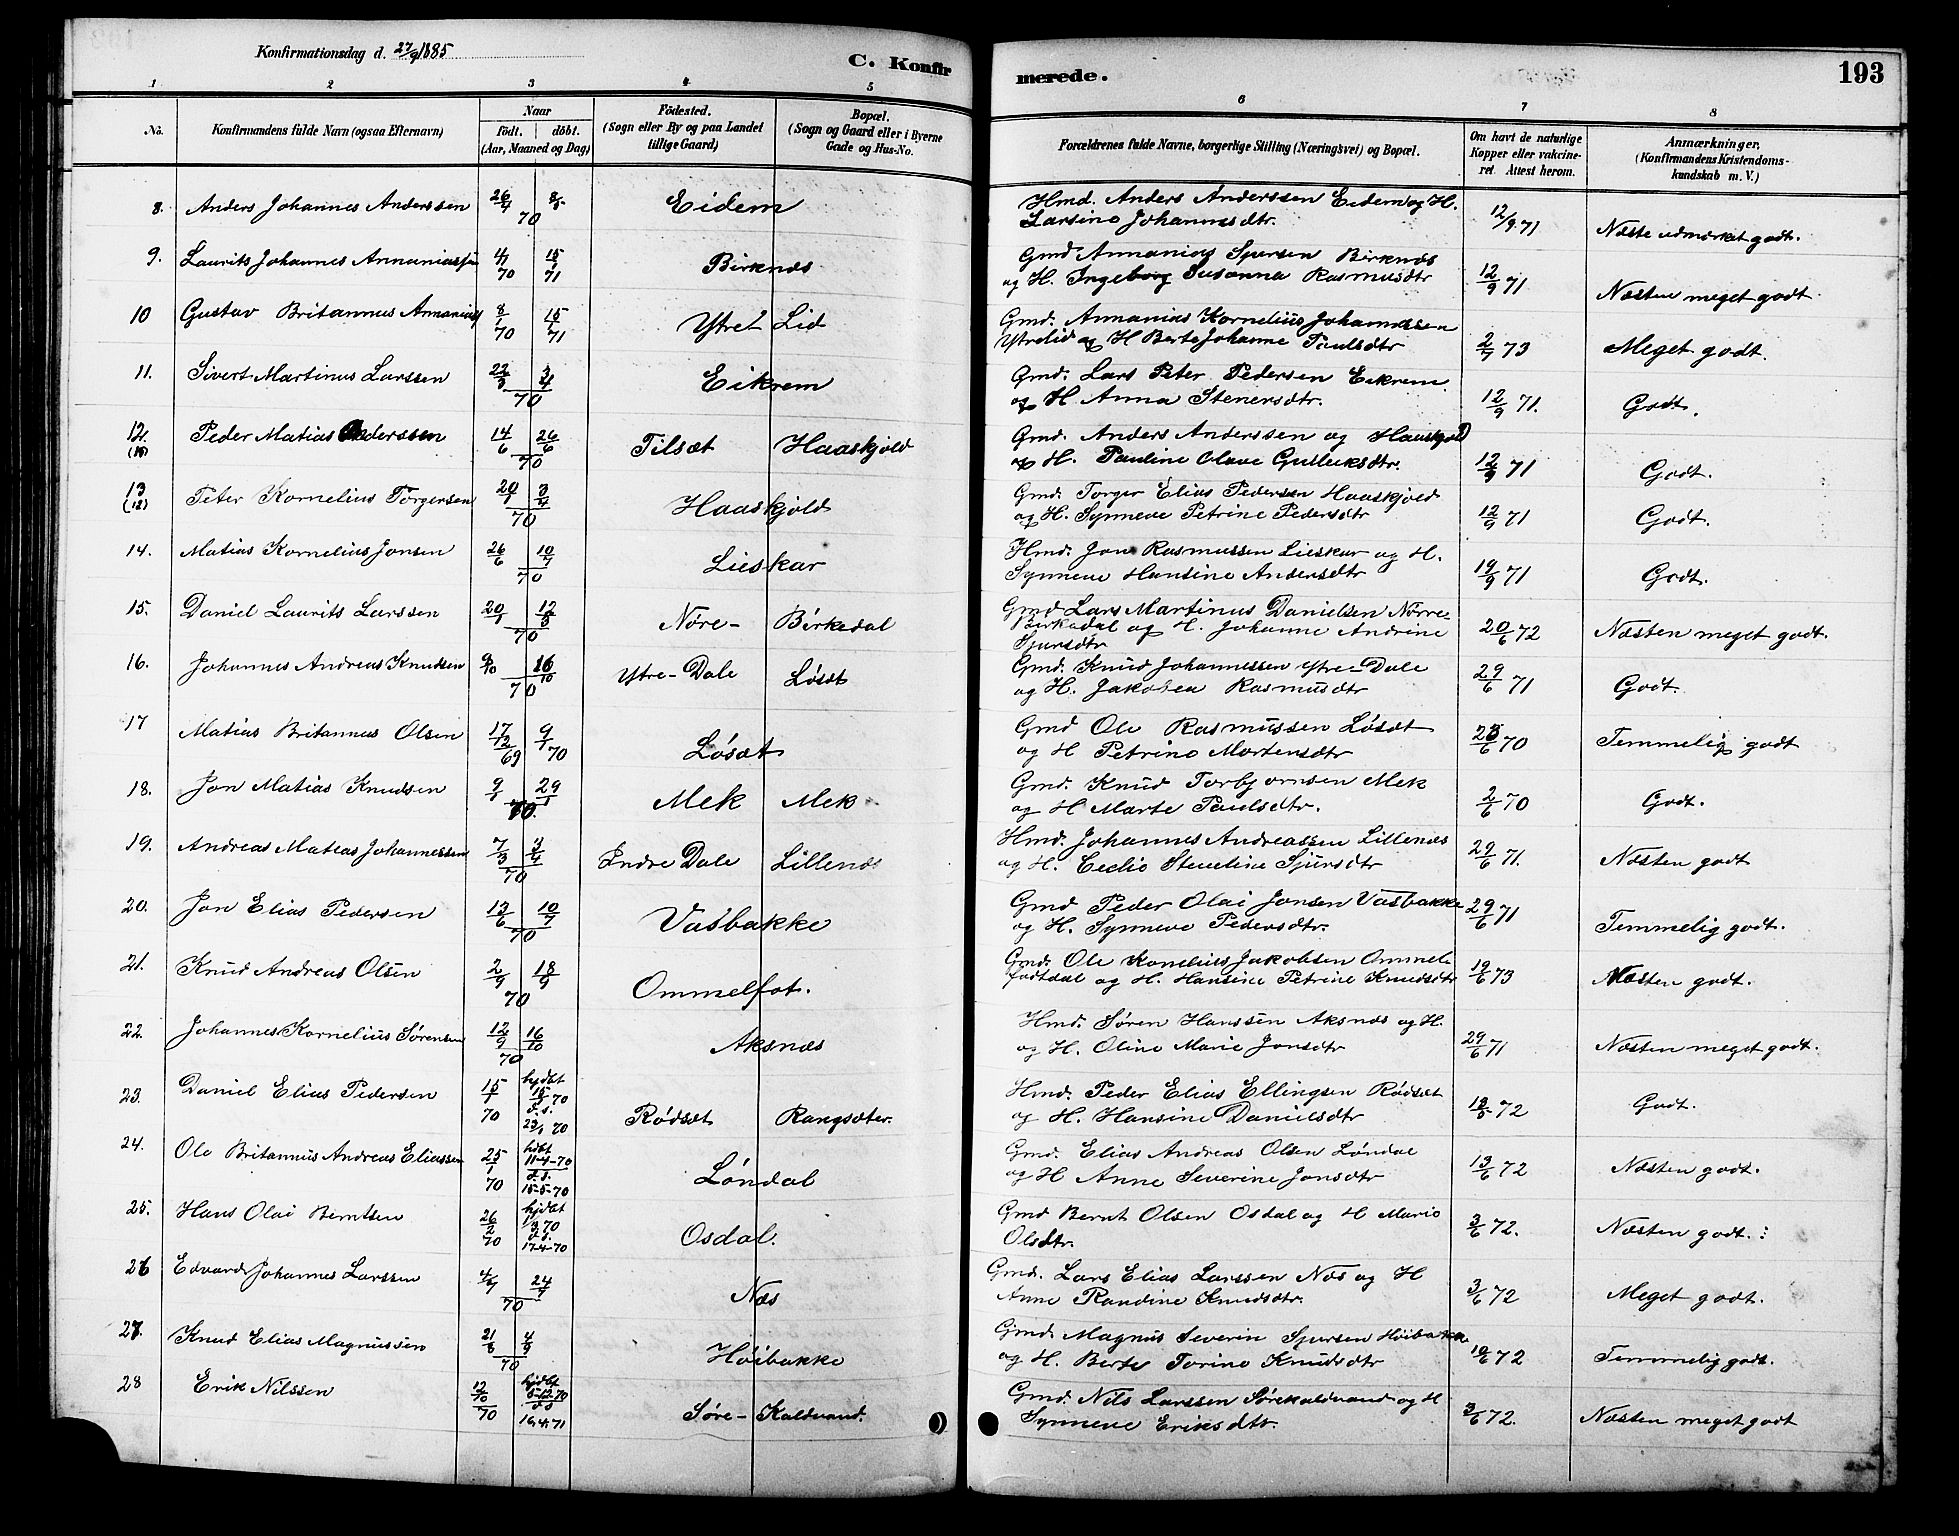 Konfirmationsdag d. 27/9 1885
C. Konfirmerede.
193
1 2 3 4 5 6 7 8
No.
Konfirmandens fulde Navn (ogsaa Efternavn)
Naar
födt. döbt.
(Aar, Maaned og Dag)
Födested.
(Sogn eller By og paa Landet
tillige Gaard)
Bopæl.
(Sogn og Gaard eller i Byerne
Gade og Hus-No.
Forældrenes fulde Navne, borgerlige Stilling (Næringsvei) og Bopæl.
Om havt de naturlige
Kopper eller vakcine-
ret. Attest herom.
Anmærkninger,
(Konfirmandens Kristendoms-
kundskab m. V.)
8. Anders Johannes Anderssen 70 Eidem Hmd. Anders Anderssen Eidem og H. 12/9 71 Næste udmærket godt.
Larsine Johannesdtr.
9. Laurits Johannes Annaniassen 4/1 70 15/1 71 Birknæs Gmd Annanias Sjursen Birknæs 12/9 71 Næsten meget godt.
og H. Ingeborg Susanna Rasmusdtr
10 Gustav Britannus Annanias 8/1 70 15/1 71 Ytret Lid Gmd. Annanias Kornelius Johannessen 2/7 73 Meget godt.
Ytrelid og H Berte Johanne Paulsdtr
11. Sivert Martinus Larssen 22/3 3/4 70 Eikrem Gmd. Lars Peter Pedersen Eikrem 12/9 71. Godt.
og H. Anna Stenersdtr.
12. (13) Peder Matias Anderssen 14/6 26/6 70 Tilsæt Haaskjold Gmd. Anders Anderssen og Haaskjold 12/9 71 Godt.
og H. Pauline Olave Gulleiksdtr.
13 (12) Peter Kornelius Torgersen 20/1 3/4 70 Haaskjold Gmd. Torger Elias Pedersen Haaskjold 12/9 71 Godt.
og H. Synneve Petrine Pedersdtr
14. Matias Kornelius Jonsen 26/6 10/7 70 Lieskar Hmd. Jon Rasmussen Lieskar og H. 19/9 71 Godt.
Synneve Hansine Andersdtr
15. Daniel Laurits Larssen 70 Nore- Birkedal Gmd Lars Martinus Danielsen Nørre- 20/6 72 Næsten meget godt.
Birkedal og H. Johanne Andrine
Sjursdtr
16. Johannes Andreas Knudsen 9/10 16/10 70 Ytre-Dale Løsæt Gmd. Knud Johannessen Ytre-Dale 29/6 71 Godt.
og H. Jakobea Rasmusdtr
17 Matias Britannus Olsen 17/12 69 9/1 70 Løsæt Gmd Ole Rasmussen Løsæt 23/6 70 Temmelig godt
og H Petrine Mortensdtr
18. Jon Matias Knudsen 9/1 29/1 70. Mek Mek Gmd. Knud Torbjørnsen Mek 2/6 70 Godt.
og H Marte Paulsdtr.
19. Andreas Matias Johannessen 7/3 3/4 70 Indre Dale Lillenæs Hmd. Johannes Andreassen Lillenæs 29/6 71. Næsten godt
og H. Ceclie Steneline Sjursdtr
20. Jon Elias Pedersen 13/6 10/7 70 Vasbakke Gmd Peder Olai Jonsen Vasbakke 29/6 71 Temmelig godt.
og H. Synneve Pedersdtr.
21. Knud Andreas Olsen 2/9 18/9 70 Ommelfot. Gmd. Ole Kornelius Jakobsen Ommel- 19/6 73 Næsten godt.
fodtdal og H. Hansine Petrine Knudsdtr
22. Johannes Kornelius Sørensen 12/9 16/10 70 Aksnæs Hmd. Søren Hanssen Aksnæs og H. 29/6 71 Næsten meget godt.
og H. Oline Marie Jonsdtr
23. Daniel Elias Pedersen 15/1 70 hjdbt 70 d.s. 70 Rødsæt Rangsæter. Hmd. Peder Elias Ellingsen Rødsæt 72 Godt.
og H. Hansine Danielsdtr
24. Ole Britannus Andreas Eliassen 25/1 70 hdbt 11-4-70 d.s. 15-5-70 Løndal Gmd. Elias Andreas Olsen Løndal 13/6 72 Næsten godt.
og H Anne Severine Jonsdtr
25. Hans Olai Berntsen 26/2 70 hjdbt 70 d.s. 17-4-70 Osdal. Gmd Bernt Olsen Osdal og H Marie 3/6 72. Næsten godt.
Olsdtr.
26 Edvard Johannes Larssen 4/7 24/7 70 Næs Gmd. Lars Elias Larssen Næs og H 3/6 72 Meget godt.
Anne Randine Knudsdtr.
27. Knud Elias Magnussen 21/8 4/9 70 Høibakke Gmd. Magnus Severin Sjursen Høibakke 10/6 72 Temmelig godt.
og H. Berte Torine Knudsdtr
28 Erik Nilssen 12/10 70 hjdbt 5-12-70 d.s 16-4-71 Søre- Kaldvand. Gmd. Nils Larssen Sørekaldvand og H 3/6 72. Næsten meget godt
Synneve Eriksdtr.